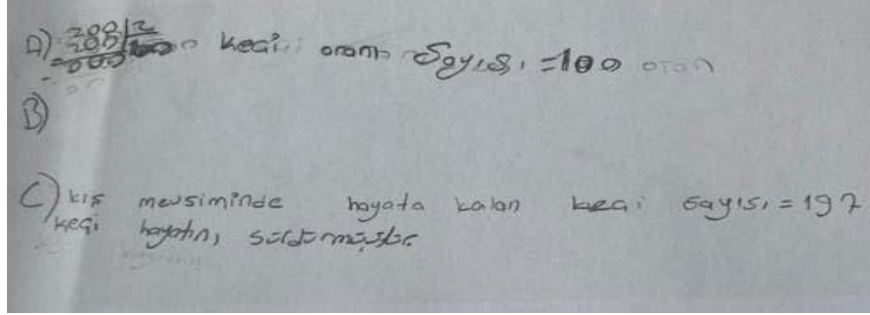 A) 200 2 keçi oranı Sayısı = 100 oran
B)
C) kış mevsiminde hayata kalan keçi sayısı = 197
keçi hayatını sürdürmüştür